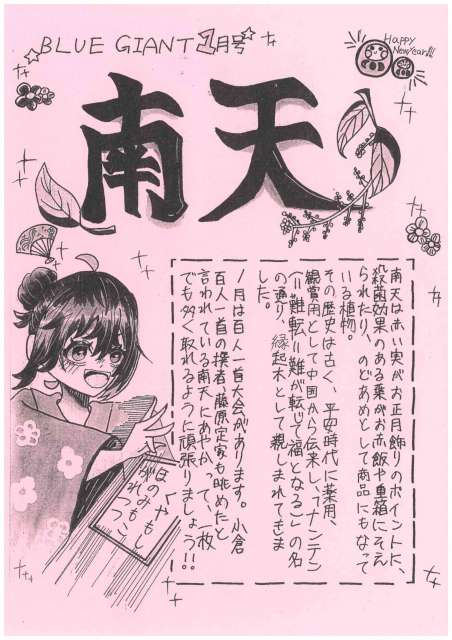 BLUE GIANT 1月号
HAPPY
New year!!!
南天
南天は赤い実がお正月飾りのポイントに、
殺菌効果のある葉がお赤飯や重箱にそえ
られたり、のどあめとして商品にもなって
いる植物。
その歴史は古く、平安時代に薬用、
観賞用として中国から伝来し、「ナンテン
(=難転=難が転じて福となる)」の名
の通り、縁起木として親しまれてきま
した。
1月は百人一首大会があります。小倉
百人一首の撰者、藤原定家も眺めたと
言われている南天にあやかって、一枚
でも多く取れるように頑張りましょう!!
くやもし
ほのみもこ
がれつつ